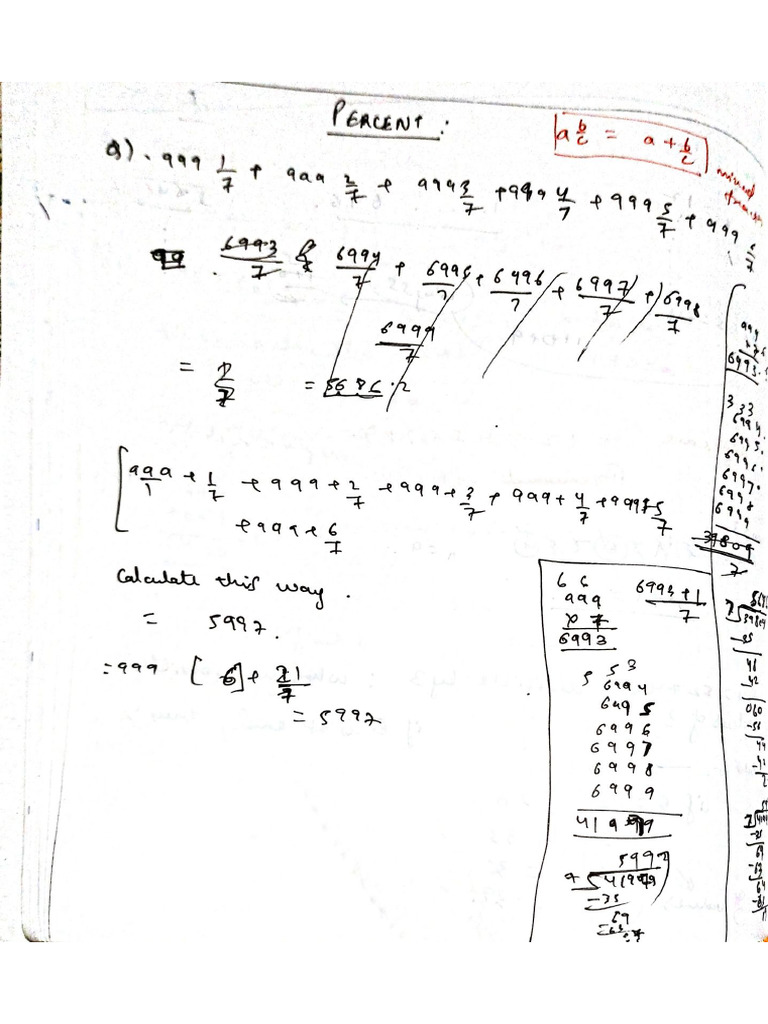 PERCENT:
a b/c = a + b/c
mixed fraction
Q). 999 1/7 + 999 2/7 + 999 3/7 + 999 4/7 + 999 5/7 + 999 6/7
6993/7 6994/7 + 6995/7 + 6496/7 + 6997/7 + 6998/7
6999/7
= = 5686.2
[999/1 + 1/7 + 999 + 2/7 + 999 + 3/7 + 999 + 4/7 + 999 + 5/7
+ 999 + 6/7
Calculate this way.
= 5997.
= 999 [6] + 21/7
= 5997
6 6
999
x 7
6993
6993 + 1/7
5 5 3
6994
6995
6996
6997
6998
6999
5997
-35
69
6993
3 33
6994
6995
6996
6997
6998
6999
39809
7